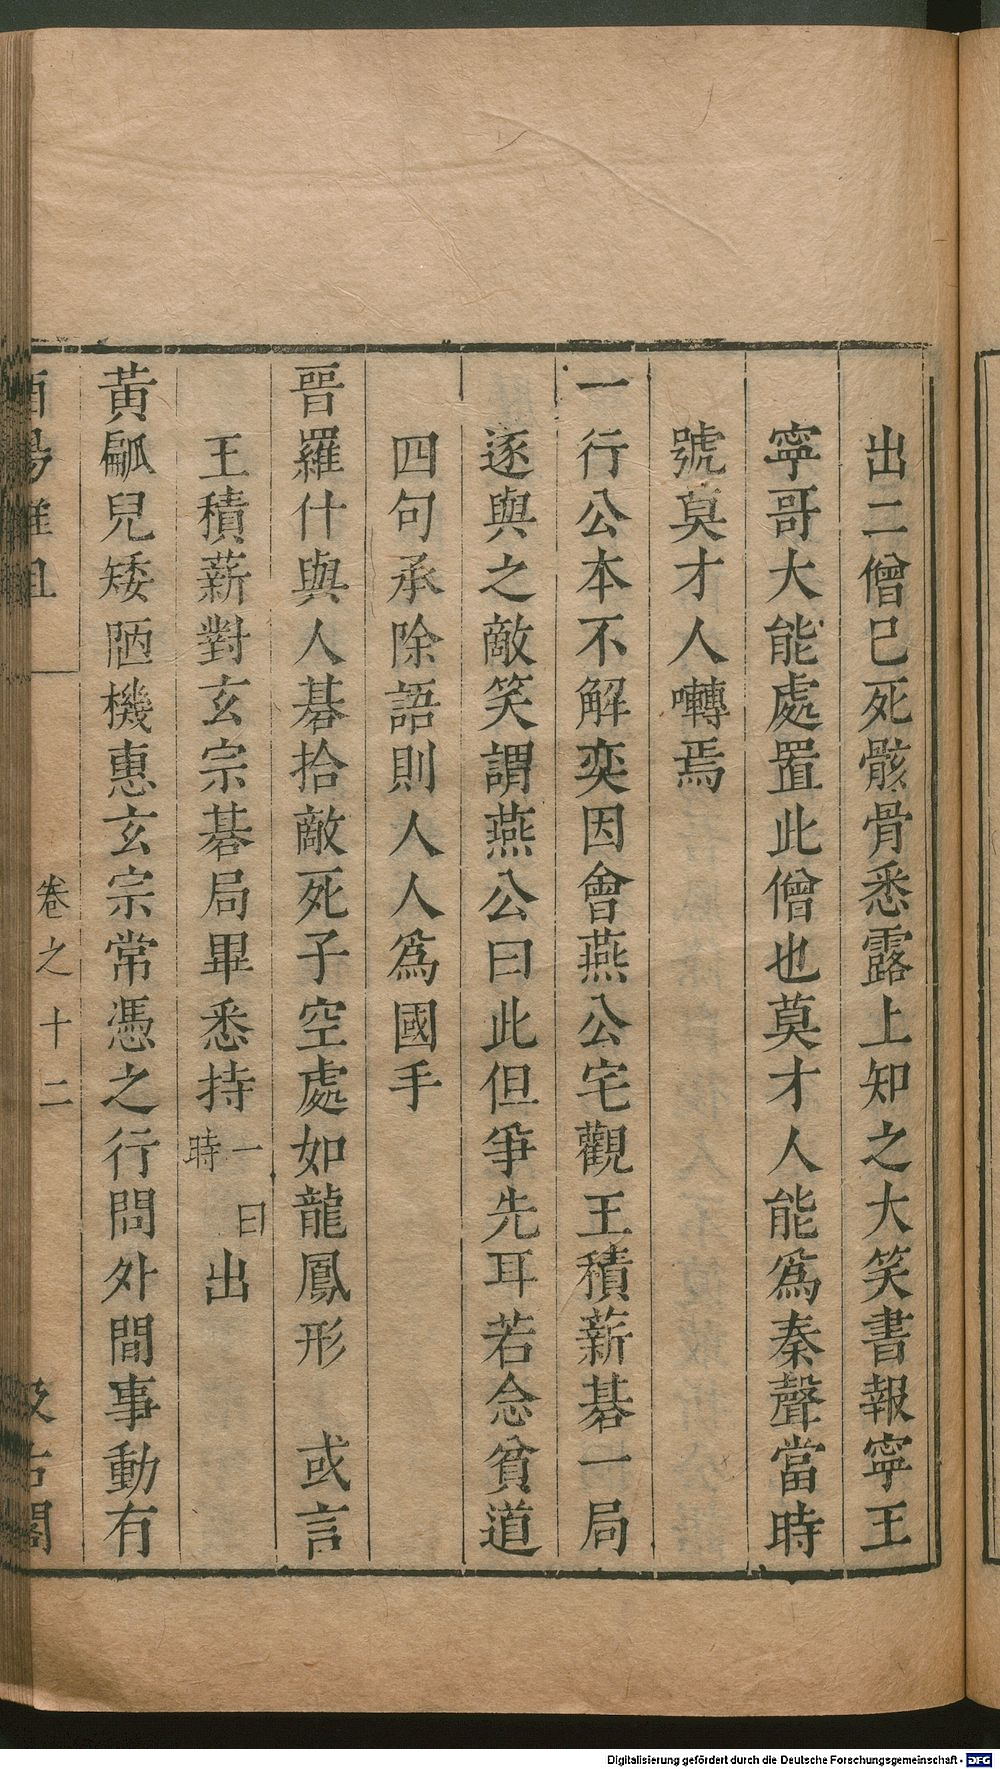 出二僧已死骸骨悉露上知之大笑書報寧王
寧哥大能處置此僧也莫才人能爲秦聲當時
號莫才人囀焉
一行公本不解奕因會燕公宅觀王積薪碁一局
逐與之敵笑謂燕公曰此但爭先耳若念貧道
四句承除語則人人爲國手
晋羅什與人碁拾敵死子空處如龍鳳形 或言
王積薪對玄宗碁局畢悉持一曰時出
黃𤬛兒矮陋機惠玄宗常憑之行問外間事動有
酉陽雜俎 卷之十二 汲古閣
Digitalisierung gefördert durch die Deutsche Forschungsgemeinschaft - DFG